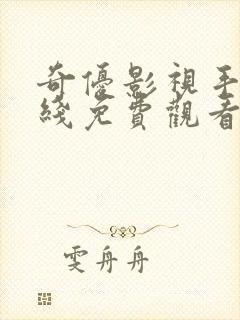 奇優影視手
綫免費觀看
雯舟舟